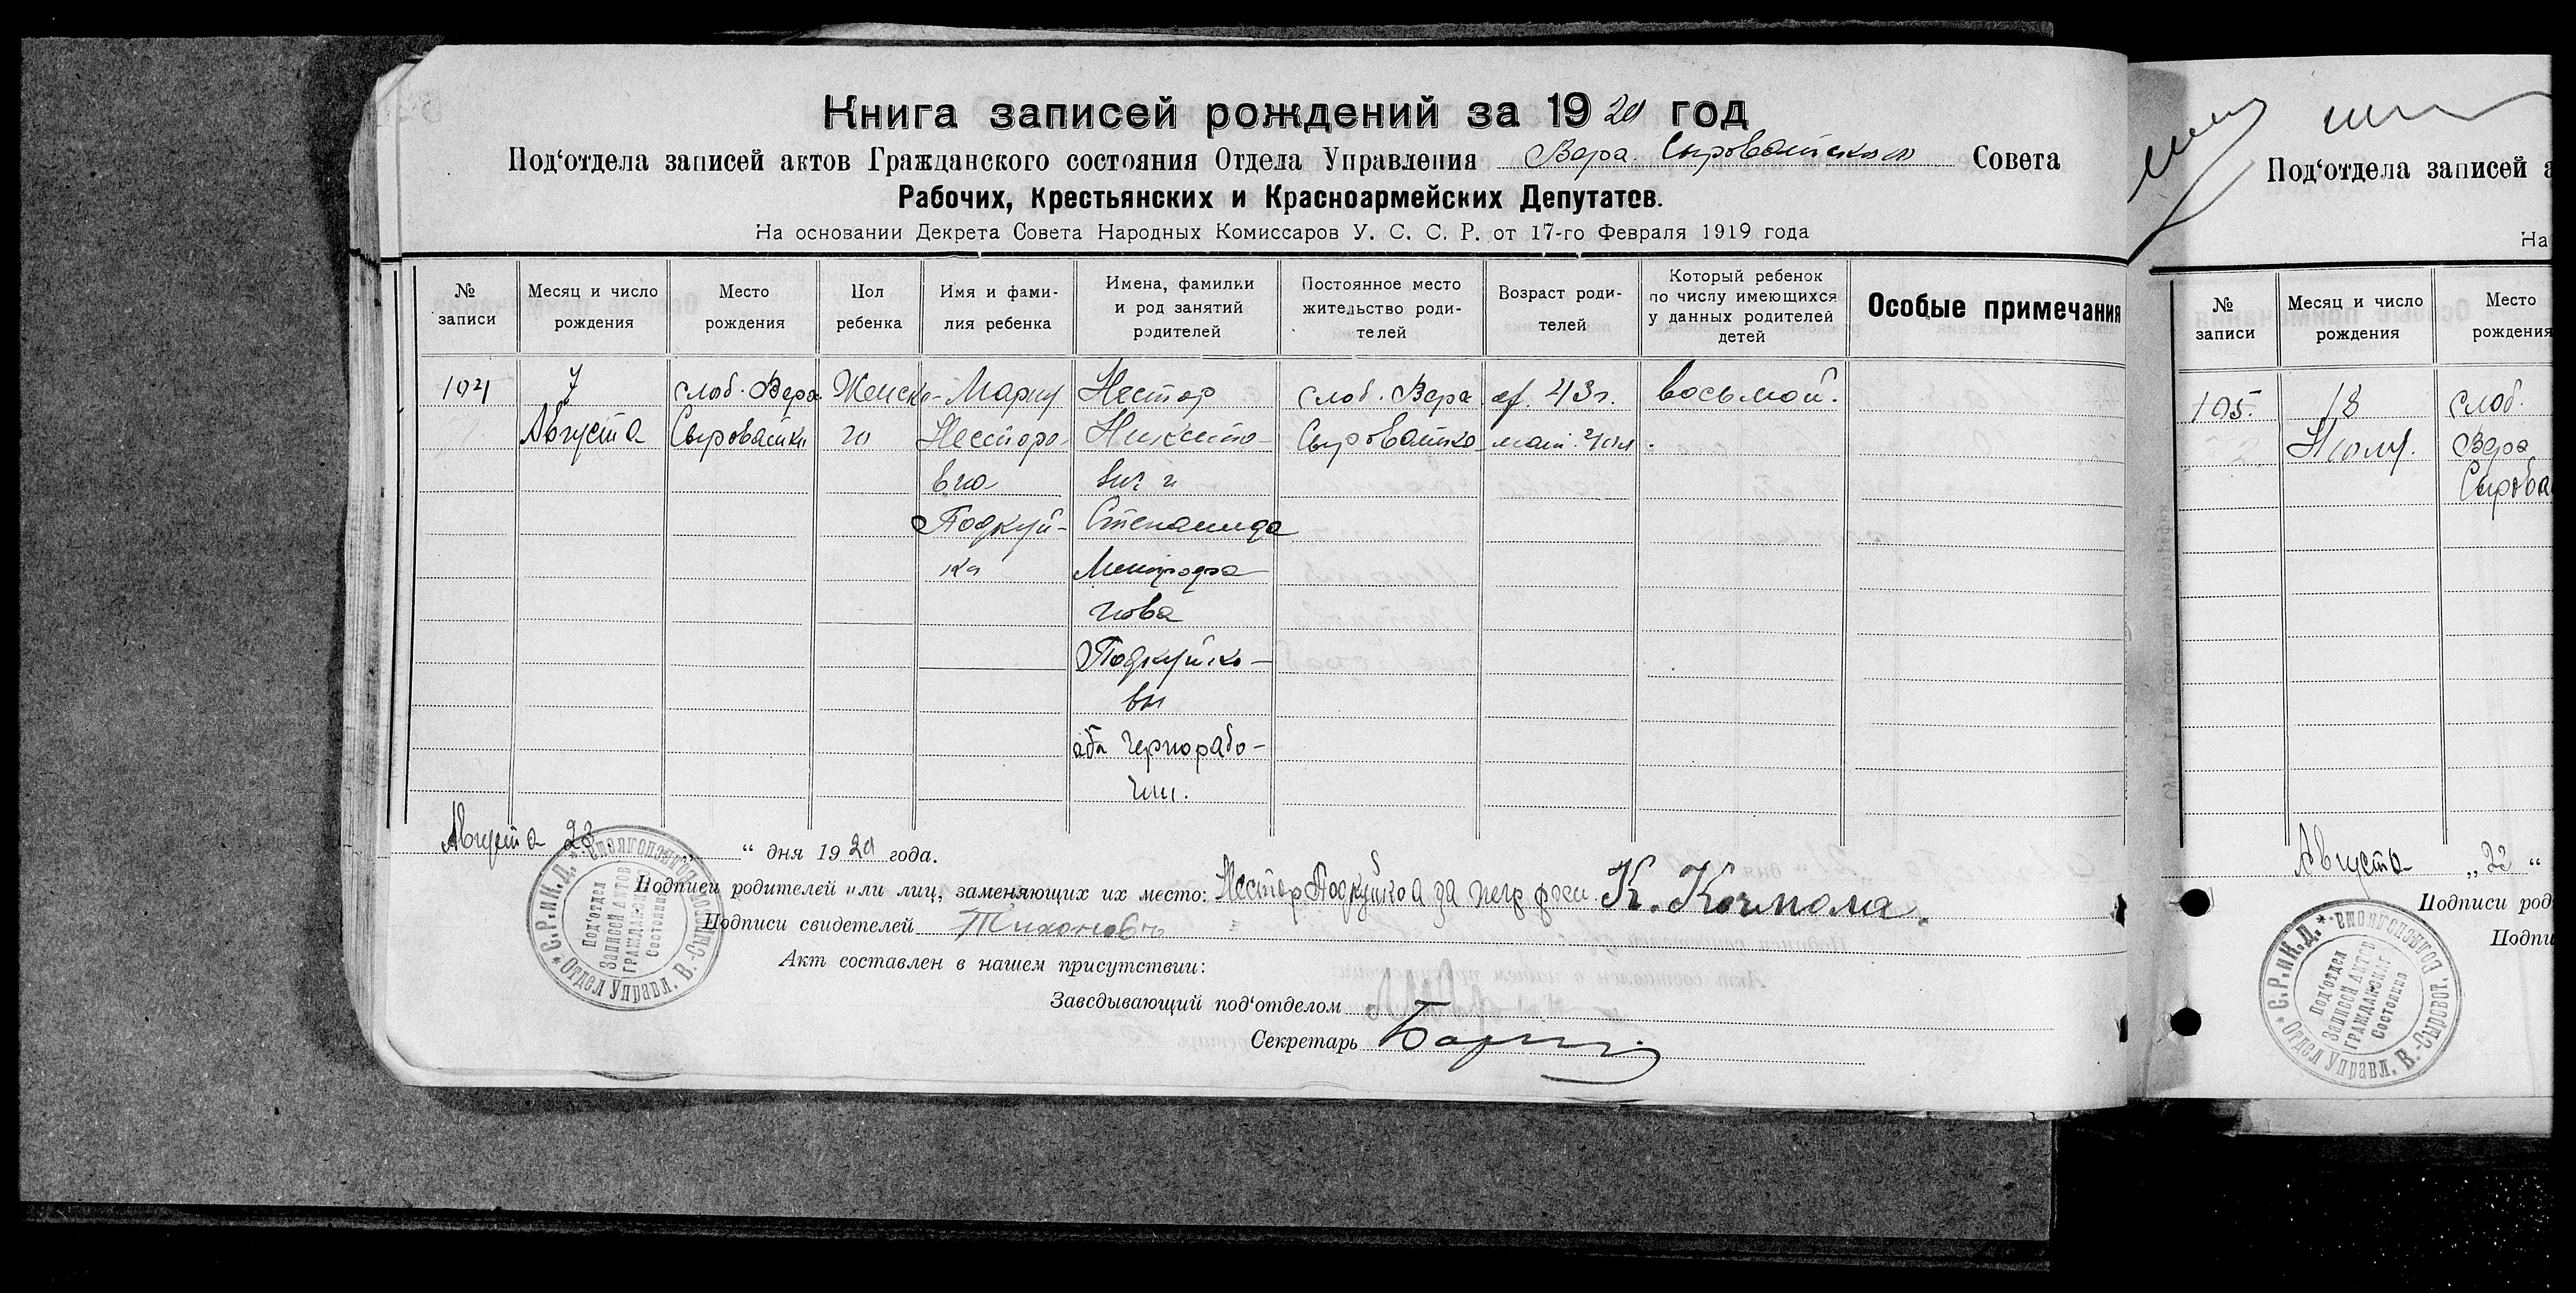 Книга записей рождений за 1920 год
Под‘отдела записей актов Гражданского состояния Отдела Управления Верх. Сыроватского Совета
Рабочих, Крестьянских и Красноармейских Депутатов.
На основании Декрета Совета Народных Комиссаров У. С. С. Р. от 17-го Февраля 1919 года
№ записи
Месяц и число рождения
Место рождения
Пол ребенка
Имя и фами-
лия ребенка
Имена, фамилки
и род занятий
родителей
Постоянное место
жительство роди-
телей
Возраст роди-
телей
Который ребенок
по числу имеющихся
у данных родителей
детей
Особые примечания
104
7
Августа
слоб. Верх
Сыроватки
Женск-
го
Мария
Несторо-
вна
Подкуй-
ка
Нестор
Никито-
вич и
Степанида
Митрофа
нова
Подкуйко-
вы
оба чернорабо-
чии.
Слоб. Верх
Сыроватка
от. 43 г.
мат.
восьмой.
Августа 23 „ “ дня 1920 года.
Подписи родителей или лиц, заменяющих их место: Нестор Подкуйко а за негр К. Кочмола.
Подписи свидетелей Тихонов
Акт составлен в нашем присутствии:
Заведывающий под‘отделом
Секретарь
* С.Р.и К.Д. *
Отдел Управл. В.-Сыроват. Волисполкома
Под‘отдел
Записей Актов
Гражданског
Состояния
Под‘отдела записей а
На
№ записи
Месяц и число рождения
Место рождения
105.
18
Июля.
Слоб.
Верх
Сырова
Августа „22 “
Подписи род
Подпи
* С.Р.и К.Д. *
Отдел Управл. В.-Сыроват. Волисполкома
Под‘отдел
Записей Актов
Гражданског
Состояния